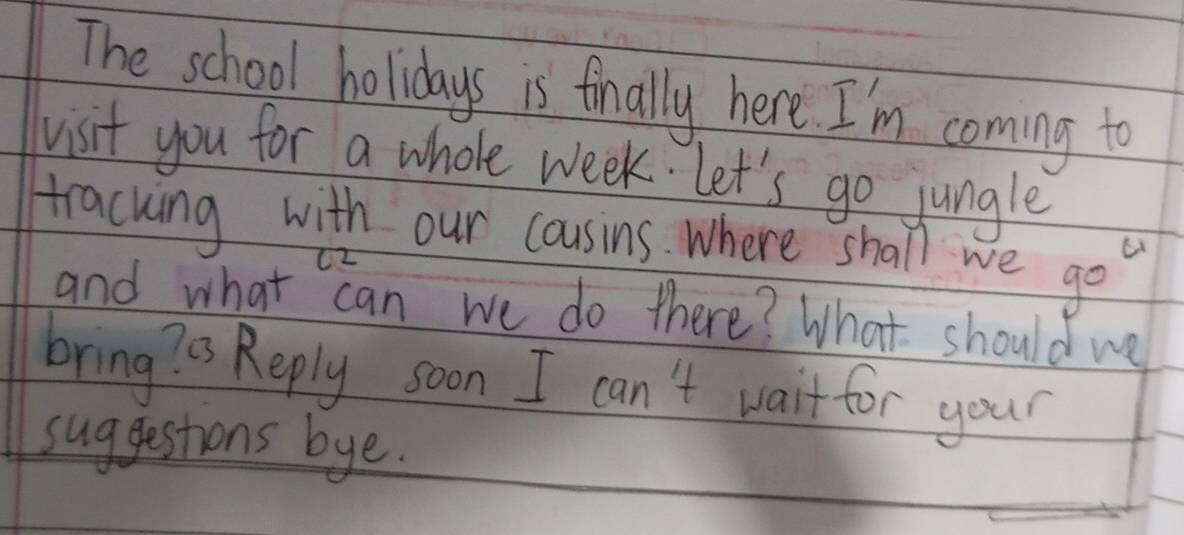 The school holidays is finally here. I'm coming to
visit you for a whole week. Let's go jungle
tracking with our cousins. Where shall we go C1
and what C2 can we do there? What should we
bring? C3 Reply soon I can't wait for your
suggestions bye.